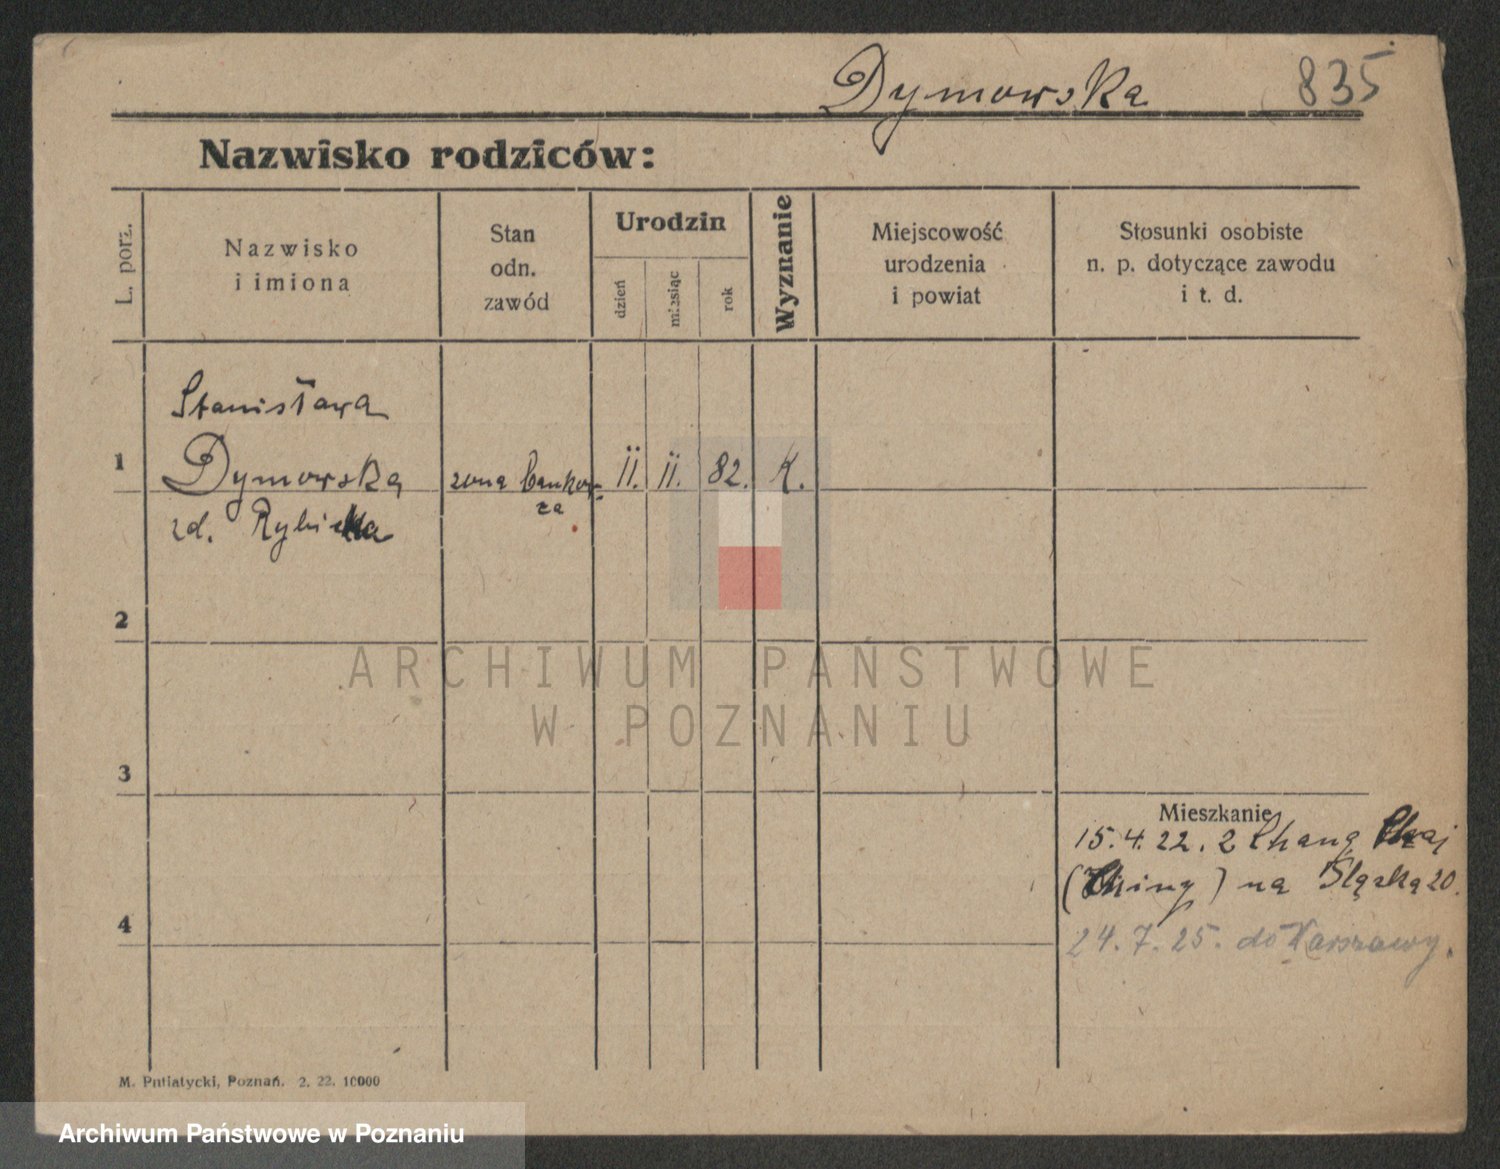 Dymowska 835
Nazwisko rodziców:
L. porz.
Nazwisko
i imiona
Stan
odn.
zawód
Urodzin
dzień
miesiąc
rok
Wyznanie
Miejscowość
urodzenia
i powiat
Stosunki osobiste
n. p. dotyczące zawodu
i t. d.
Stanisława
1 Dymowska żona bankow- 11. 11. 82. K.
za
zd.
2
ARCHIWUM PAŃSTWOWE
W POZNANIU
3
Mieszkanie
15. 4. 22. z Chang
na Śląska 20.
4
24. 7. 25. do Warszawy.
M. Putiatycki, Poznań. 2. 22. 10000
Archiwum Państwowe w Poznaniu